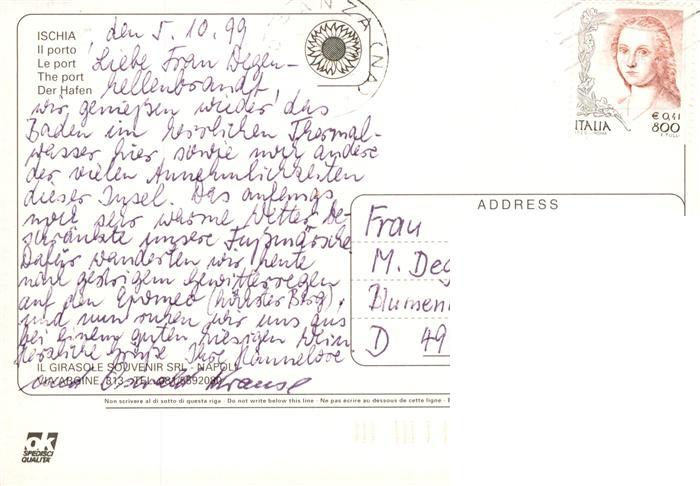 ISCHIA
Il porto
Le port
The port
Der Hafen
, den 5.10.99
Liebe Frau Degen-
hellenbrandt,
wir genießen wieder das
Baden im herrlichen Thermal-
wasser hier sowie auch andere
der vielen Annehmlichkeiten
dieser Insel. Das anfangs
noch sehr warme Wetter be-
schränkte unsere Fußmärsche
Dafür wanderten wir heute
nach gestrigem Gewitterregen
auf den Epomeo (höchster Berg),
und nun ruhen wir uns aus
bei einem guten hiesigen Wein
Herzliche Grüße Ihre Hannelore
und Oswald Krause
IL GIRASOLE SOUVENIR SRL - NAPOLI
VIA ARGINE, 313 - TEL.
Non scrivere al di sotto di questa riga - Do not write below this line - Ne pas écrire au dessous de cette ligne -
ok
SPEDISCI
QUALITÀ
€ 0,41
ITALIA 800
ADDRESS
Frau
M. Deg
Blumen
D 49